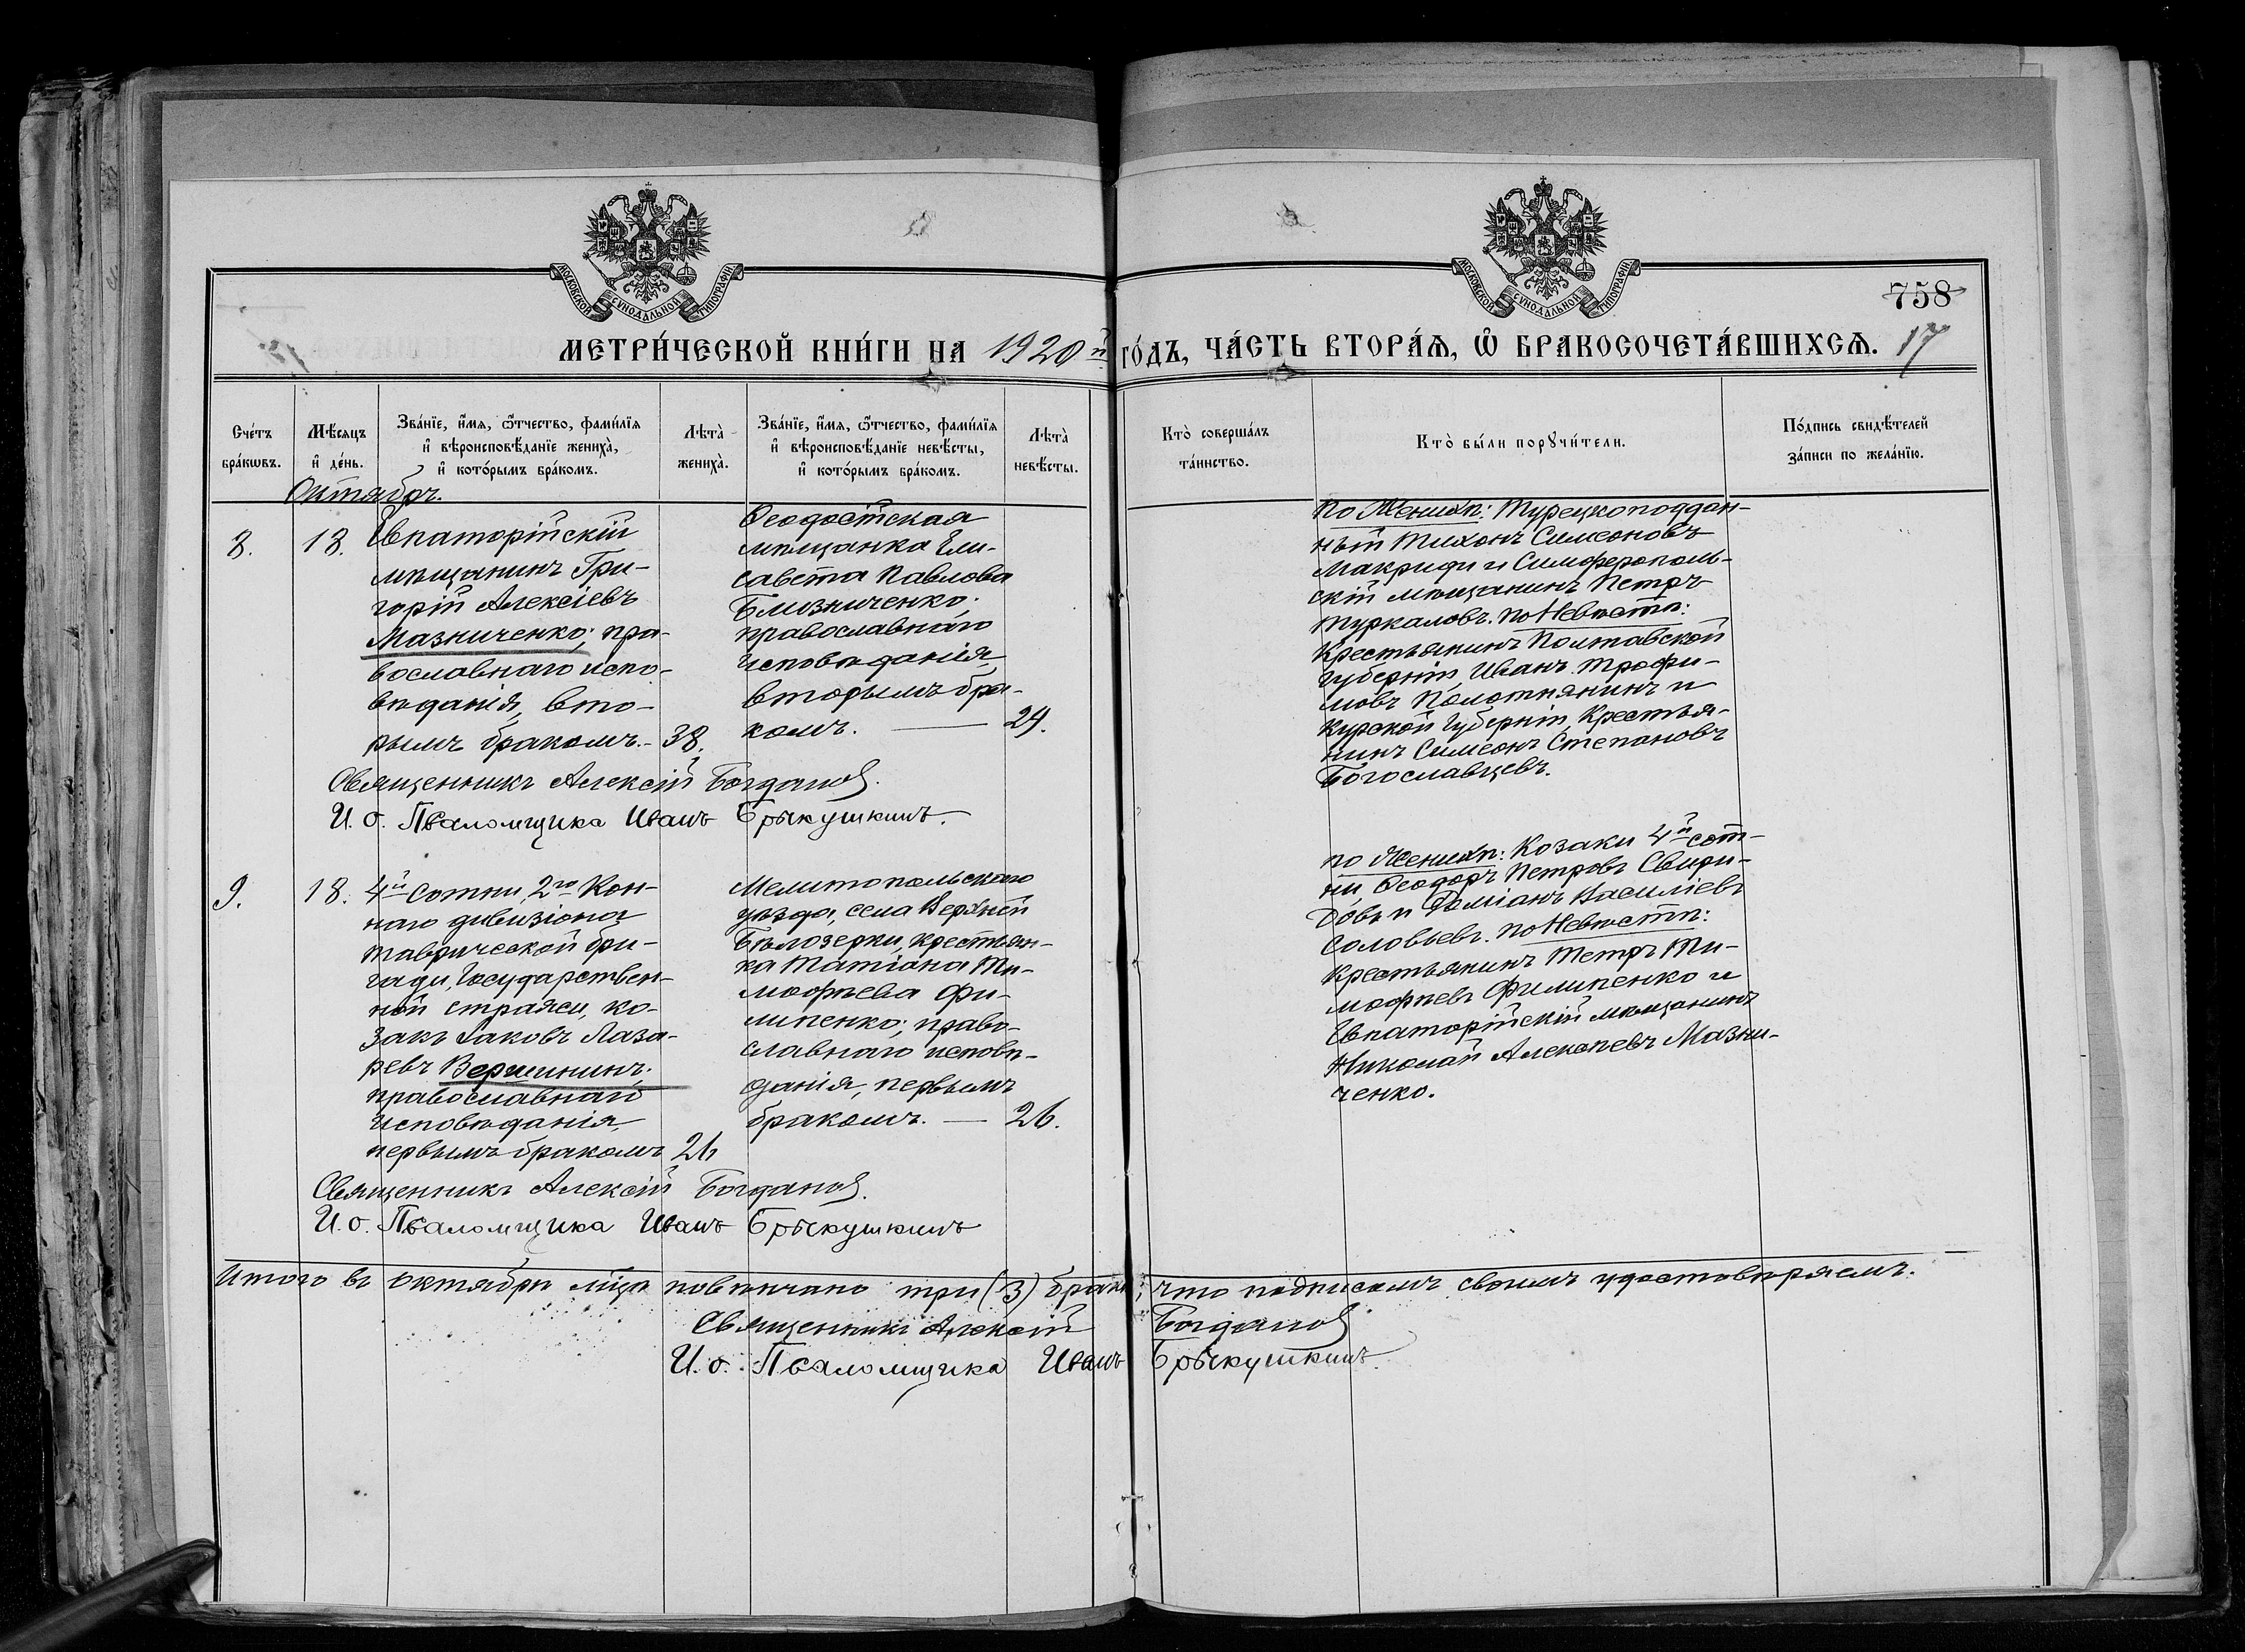 МОСКОВСКОЙ СѴНОДАЛЬНОЙ ТИПОГРАФІИ
МОСКОВСКОЙ СѴНОДАЛЬНОЙ ТИПОГРАФІИ
758
МЕТРИ́ЧЕСКОЙ КНИ́ГИ НА 1920й ГО́ДЪ, ЧА́СТЬ ВТОРА́Ѧ, Ѽ БРАКОСОЧЕТА́ВШИХСѦ. 17
Сче́тъ
бра́кѡвъ.
Мѣ́сяцъ
и҆ де́нь.
Зва́нїе, и҆́мя, ѻ҆́тчество, фами́лїя
и҆ вѣроисповѣ́данїе жениха̀,
и҆ кото́рымъ бра́комъ.
Лѣта̀
жениха̀.
Зва́нїе, и҆́мя, ѻ҆́тчество, фами́лїя
и҆ вѣроисповѣ́данїе невѣ́сты,
и҆ кото́рымъ бра́комъ.
Лѣта̀
невѣ́сты.
Кто̀ соверша́лъ
та́инство.
Кто̀ бы́ли порꙋчи́тели.
По́дпись свидѣ́телей
за́писи по жела́нїю.
Октябрь.
8.
18.
Евпаторійскій
мѣщанинъ Гри-
горій Алексіевъ
Мазниченко; пра-
вославнаго испо-
вѣданія, вто-
рымъ бракомъ.- 38.
Феодосійская
мѣщанка Ели-
савета Павлова
Близниченко;
православнаго
исповѣданія,
вторымъ бра-
комъ. — 24.
По Женихѣ: Турецкоподдан-
ный Тихонъ Симеоновъ
Макриди и Симферополь-
скій мѣщанинъ Петръ
Туркаловъ. По Невѣстѣ:
Крестьянинъ Полтавской
Губерніи, Иванъ Трофи-
мовъ Полотнянинъ и
Курской Губерніи, Крестья-
нинъ Симеонъ Степановъ
Богославцевъ.
Священникъ Алексій Богданов.
И. о. Псаломщика Иванъ Брыкушкинъ.
9.
18.
4й сотни, 2го Кон-
наго дивизіона
Таврической бри-
гады, Государствен-
ной стражи, ко-
закъ Іаковъ Лаза-
ревъ Вершининъ;
православнаго
исповѣданія,
первымъ бракомъ 26
Мелитопольскаго
уѣзда, села Верхней
Бѣлозерки, крестьян-
ка Татіана Ти-
моѳѣева Фи-
липенко; право-
славнаго исповѣ-
данія, первымъ
бракомъ. — 26.
по Женихѣ: Козаки 4й сот-
ни, Ѳеодоръ Петровъ Свири-
довъ и Даміанъ Василіевъ
Соловьевъ. По Невѣстѣ:
Крестьянинъ Петръ Ти-
моѳѣевъ Филипенко и
Евпаторійскій мѣщанинъ
Николай Алексѣевъ Мазни-
ченко.
Священникъ Алексій Богданов.
И. о. Псаломщика Иванъ Брыкушкинъ
Итого въ октябрѣ мцѣ повѣнчано три (3) брака, что подписомъ своимъ удостовѣряемъ.
Священникъ Алексій Богданов
И. о. Псаломщика Иванъ Брыкушкинъ.